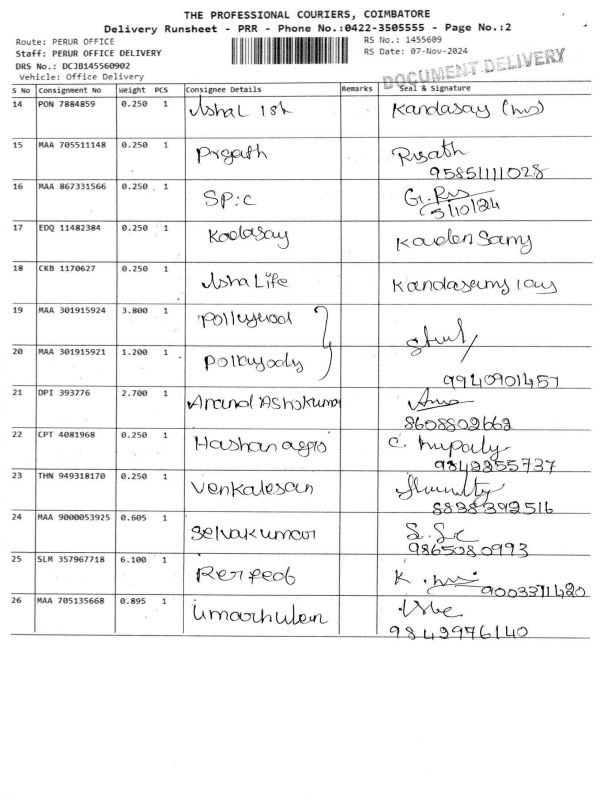 THE PROFESSIONAL COURIERS, COIMBATORE
Delivery Runsheet - PRR - Phone No.:0422-3505555 - Page No.:2
Route: PERUR OFFICE
RS No.: 1455609
Staff: PERUR OFFICE DELIVERY
RS Date: 07-Nov-2024
DRS No.: DCJB145560902
DOCUMENT DELIVERY
Vehicle: Office Delivery
S No Consignment No Weight PCS Consignee Details Remarks Seal & Signature
14 PON 7884859 0.250 1 Kandasay
15 MAA 705511148 0.250 1
95851111028
16 MAA 867331566 0.250 1 SP:C
17 EDQ 11482384 0.250 1 Kadasay Kaden Samy
18 CKB 1170627 0.250 1 Isha Life
19 MAA 301915924 3.800 1
20 MAA 301915921 1.200 1
9940901457
21 DPI 393776 2.700 1 Anand Ashokumar
8608802662
22 CPT 4081968 0.250 1 Hashan agro C.
9842255737
23 THN 949318170 0.250 1 Venkalesan
8838392516
24 MAA 9000053925 0.605 1 Selvakumar
9865080993
25 SLM 357967718 6.100 1 K.
9003371420
26 MAA 705135668 0.895 1
9842976140